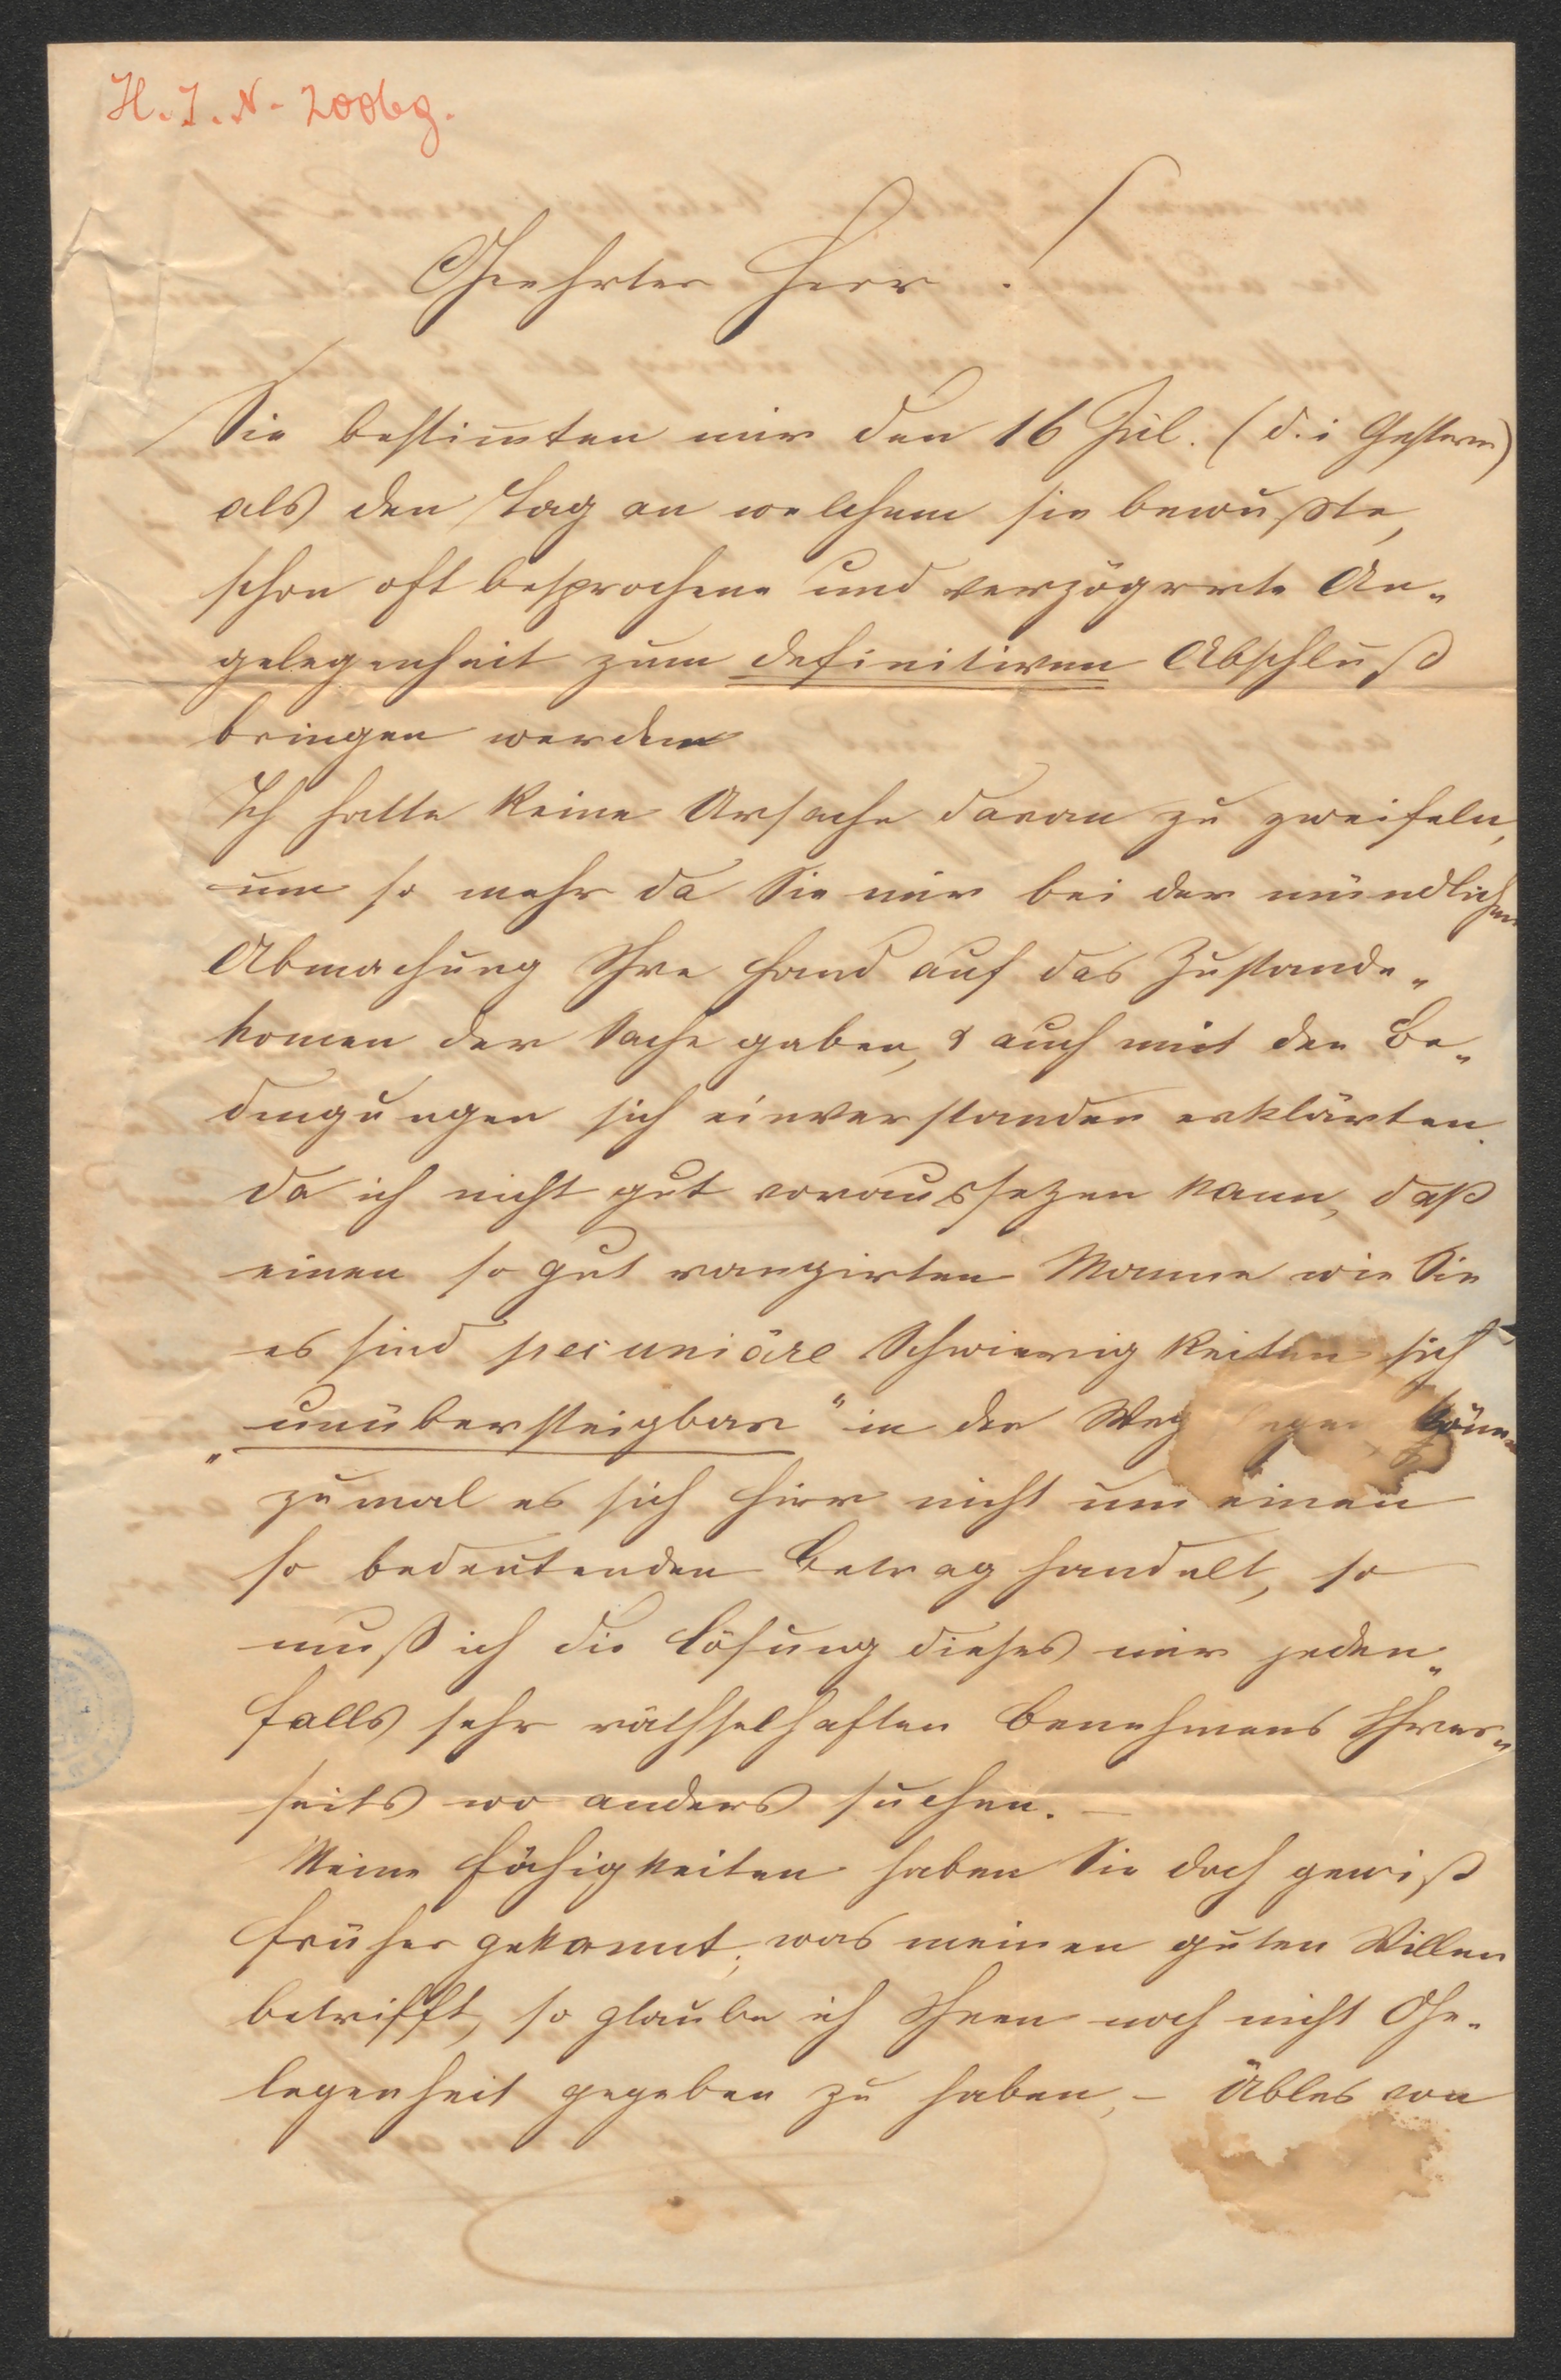 H. I. N. 20069.
Geehrter Herr!
Sie bestim̅ten mir den 16 Jul. (d. i Gestern)
als den Tag an welchem sie bewußte,
schon oft besprochene und verzögerte An-
gelegenheit zum definitiven Abschluß
bringen werden
Ich hatte keine Ursache daran zu zweifeln,
um so mehr da Sie mir bei der mündlichen
Abmachung Ihre Hand auf das Zustande-
kom̅en der Sache gaben, & auch mit den Be-
dingungen sich einverstanden erklärten.
da ich nicht gut voraussetzen kann, daß
einen so gut rangirten Manne wie Sie
es sind pecuniäre Schwierigkeiten sich
„unübersteigbar“ in den Weg legen
zumal es sich hier nicht um einen
so bedeutenden Betrag handelt, so
muß ich die Lösung dieses mir jeden-
falls sehr räthselhaften Benehmens Ihrer-
seits wo anders suchen. –
Meine Fähigkeiten haben Sie doch gewiß
früher gekannt; was meinen guten Willen
betrifft, so glaube ich Ihnen noch nicht Ge-
legenheit gegeben zu haben, – Übles von